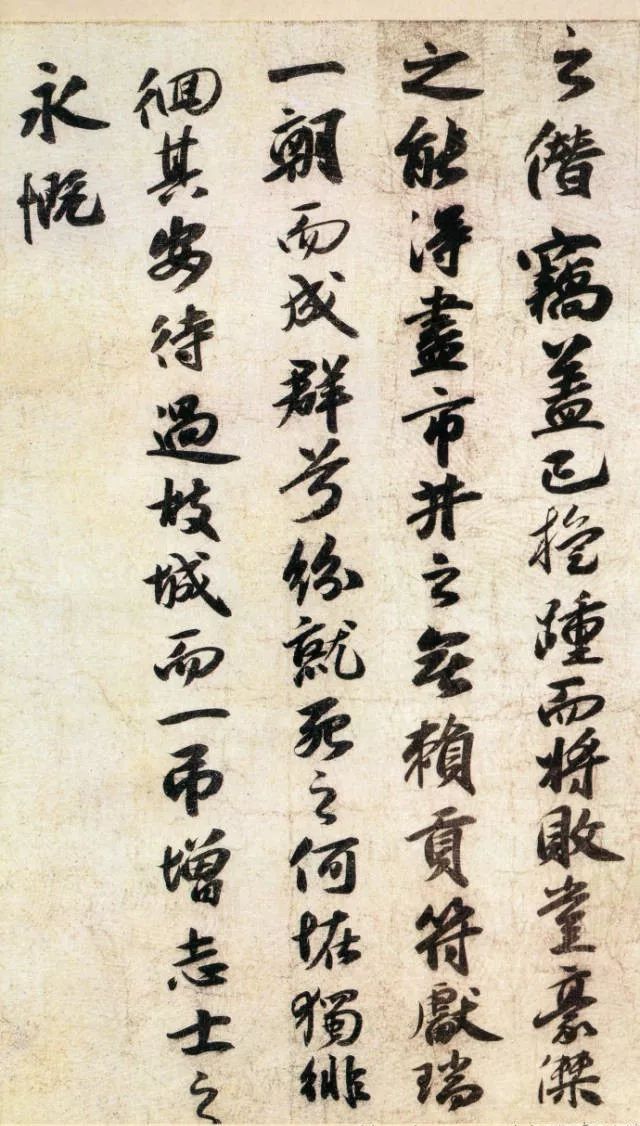 之僭竊盖已旋踵而將敗豈豪傑
之能得盡市井之無賴貢符獻瑞
一朝而成群兮紛就死之何怪獨徘
徊其安待過故城而一吊增志士之
永慨